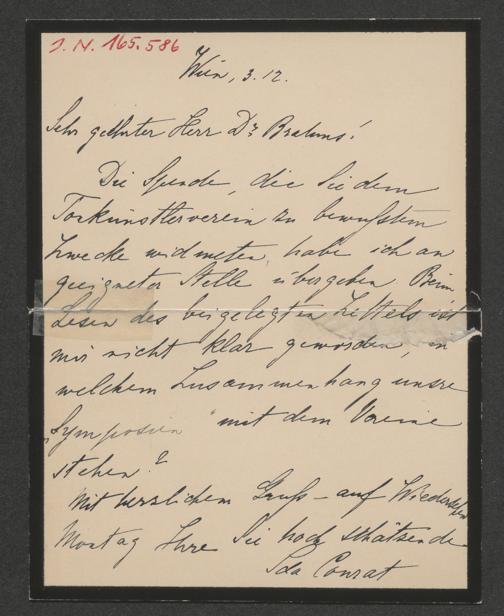 J. N. 165.586
Wien, 3.12.
Sehr geehrter Herr Dr Brahms!
Die Spende, die Sie dem
Tonkünstlerverein zu bewußtem
Zwecke widmeten, habe ich an
geeigneter Stelle übergeben. Beim
Lesen des beigelegten Zettels ist
mir nicht klar geworden, in
welchem Zusammenhang unsre
„Symposien“ mit dem Vereine
stehen?
Mit herzlichem Gruß – auf Wiedersehen
Montag Ihre Sie hoch schätzende
Ida Conrat